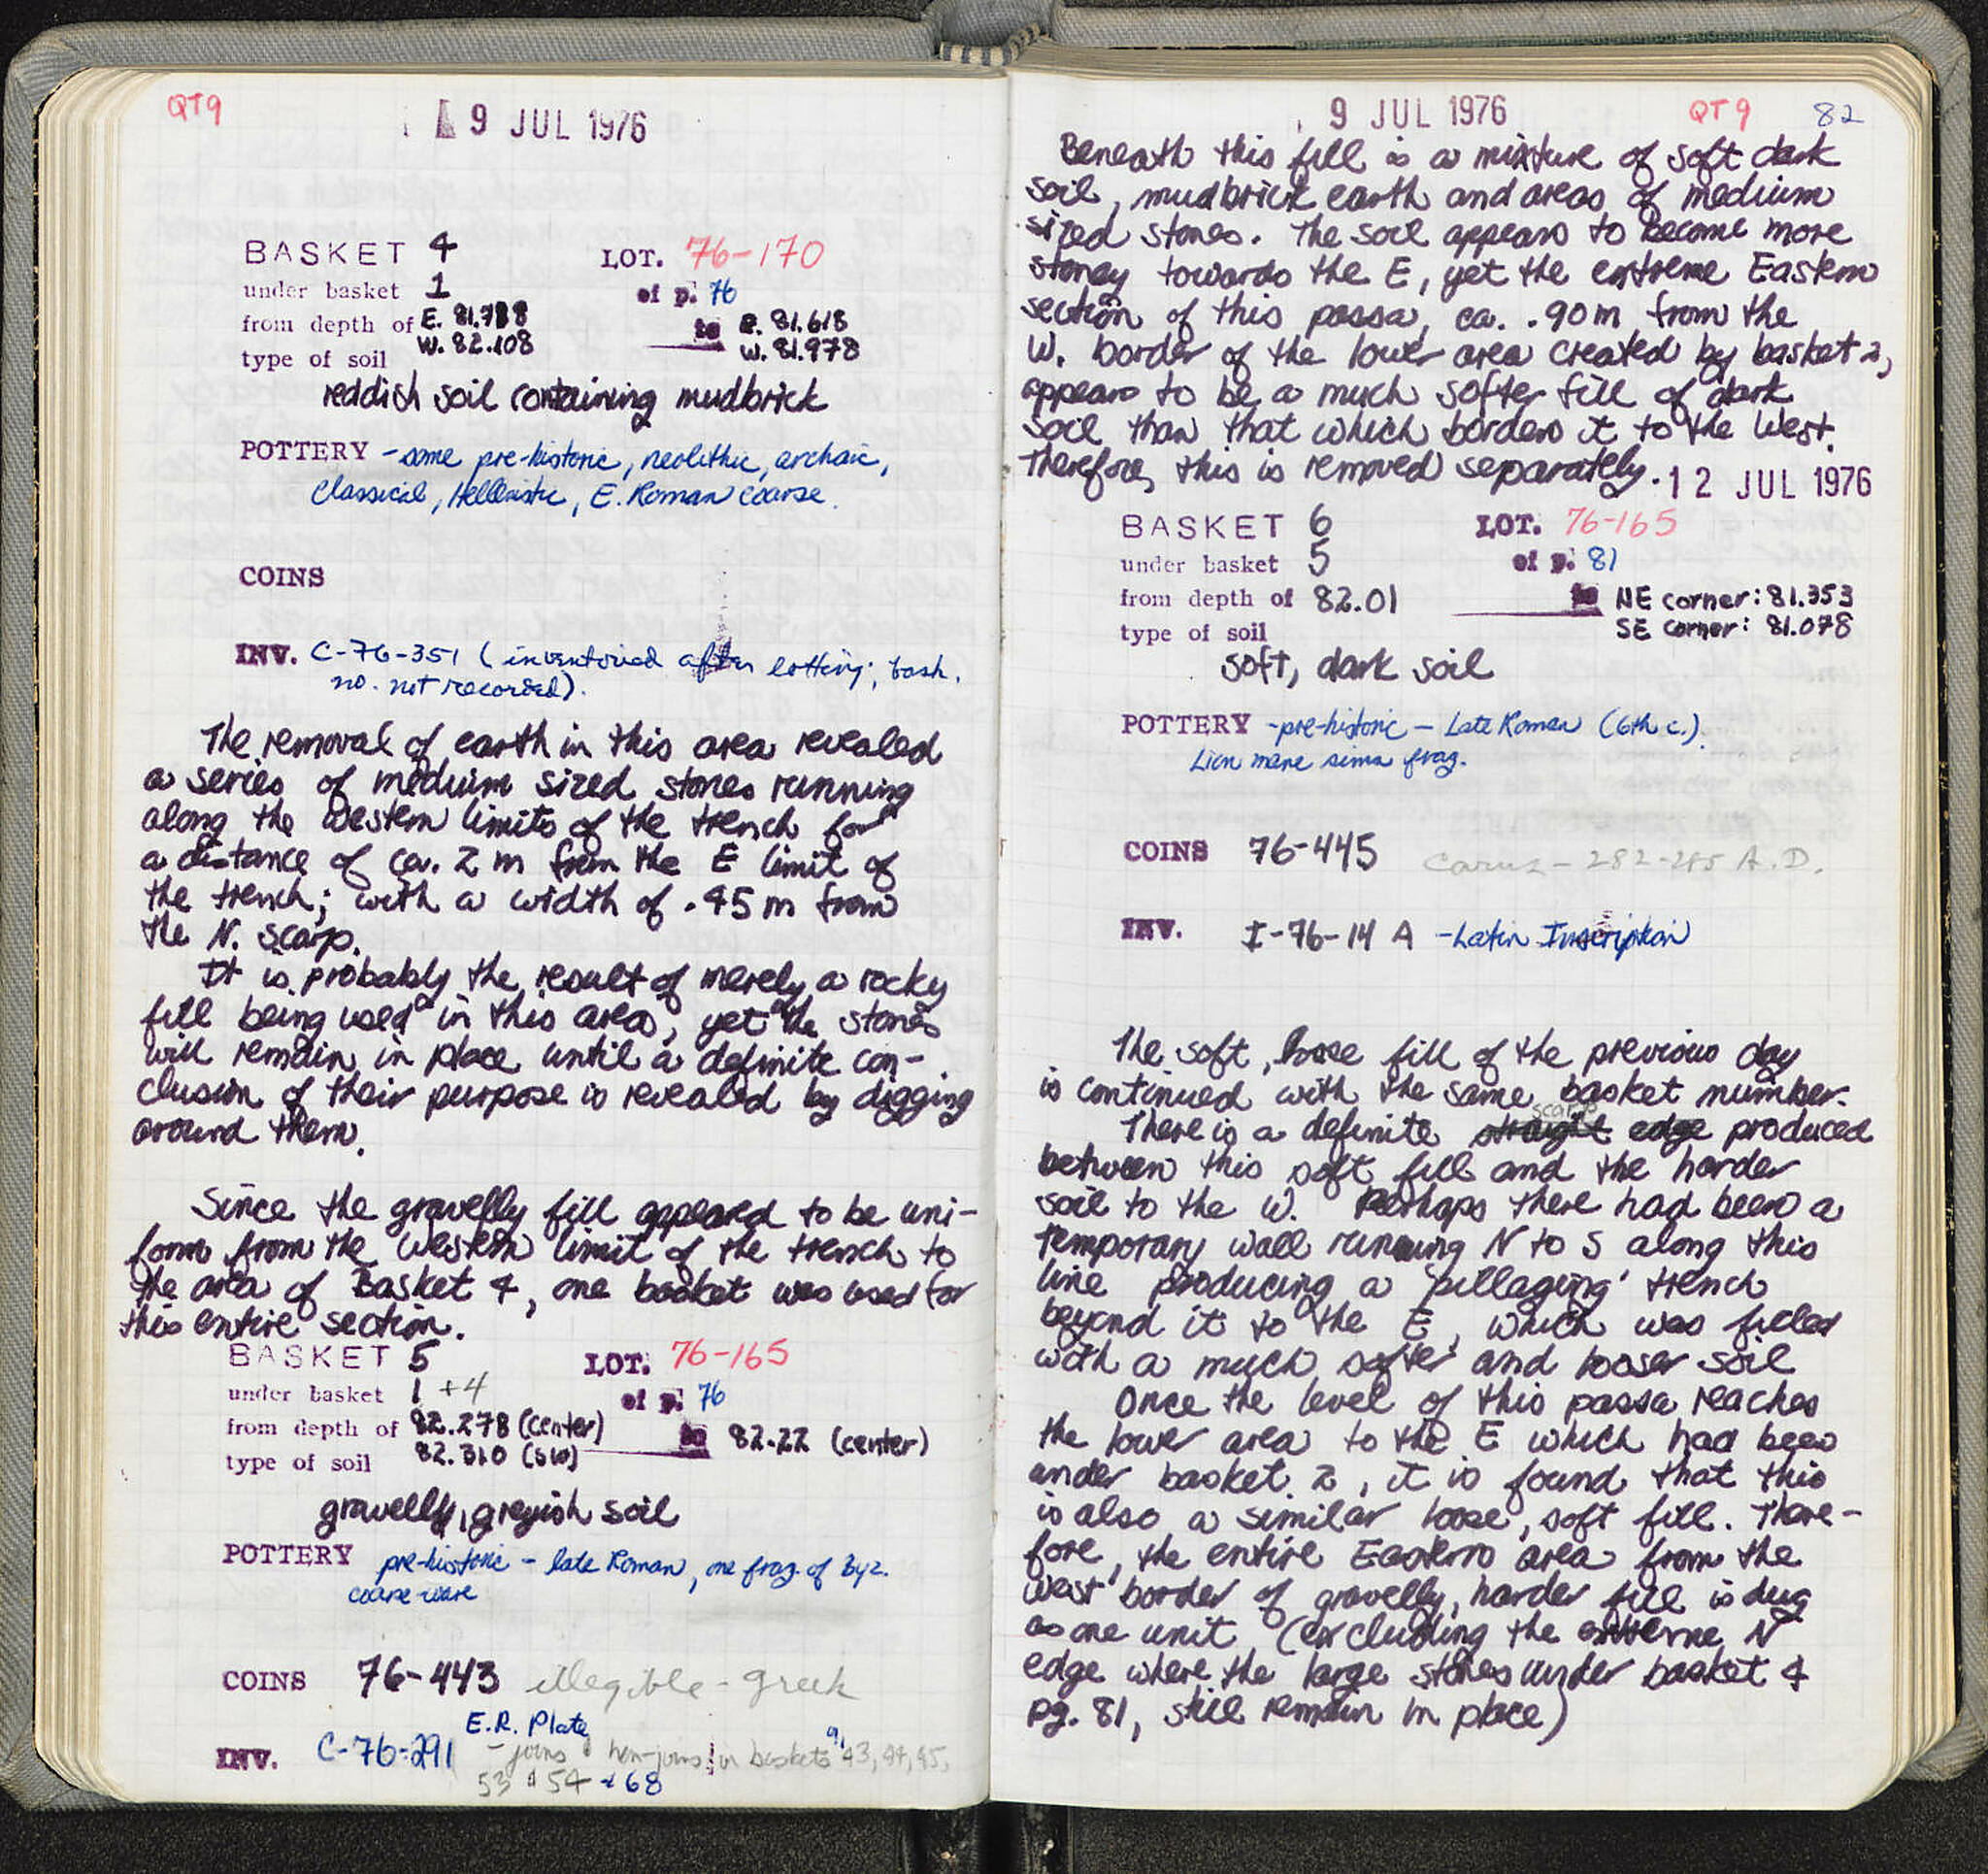 QT9
9 JUL 1976
BASKET 4 LOT. 76-170
under basket 1 of p. 76
from depth of E. 81.788 to E. 81.618
W. 82.108 W. 81.978
type of soil
reddish soil containing mudbrick
POTTERY - some pre-historic, neolithic, archaic,
Classical, Hellenistic, E. Roman coarse.
COINS
INV. C-76-351 (inventoried after lotting; bask.
no. not recorded).
The removal of earth in this area revealed
a series of medium sized stones running
along the Western limits of the trench for
a distance of ca. 2 m from the E limit of
the trench; with a width of .45 m from
the N. scarp.
It is probably the result of merely a rocky
fill being used in this area, yet the stones
will remain in place until a definite con-
clusion of their purpose is revealed by digging
around them.
Since the gravelly fill appeared to be uni-
form from the Western limit of the trench to
the area of Basket 4, one basket was used for
this entire section.
BASKET 5 LOT. 76-165
under basket 1 + 4 of p. 76
from depth of 82.278 (center) to 82.22 (center)
82.310 (SW)
type of soil
gravelly, greyish soil
POTTERY pre-historic - late Roman, one frag. of Byz.
coarse ware
COINS 76-443 illegible - Greek
E.R. Plate
INV. C-76-291 - joins & non-joins in baskets 9, 43, 44, 45,
53 & 54 + 68
9 JUL 1976 QT9 82
Beneath this fill is a mixture of soft dark
soil, mudbrick earth and areas of medium
sized stones. The soil appears to become more
stoney towards the E, yet the extreme Eastern
section of this passa, ca. .90 m from the
W. border of the lower area created by basket 2,
appears to be a much softer fill of dark
soil than that which borders it to the West.
Therefore, this is removed separately.
12 JUL 1976
BASKET 6 LOT. 76-165
under basket 5 of p. 81
from depth of 82.01 to NE corner: 81.353
SE corner: 81.078
type of soil
soft, dark soil
POTTERY - pre-historic - Late Roman (6th c.).
Lion mane sima frag.
COINS 76-445 Carus - 282-285 A.D.
INV. I-76-14 A - Latin Inscription
The soft, loose fill of the previous day
is continued with the same basket number.
There is a definite straight edge scarp produced
between this soft fill and the harder
soil to the W. Perhaps there had been a
temporary wall running N to S along this
line producing a 'pillaging' trench
beyond it to the E, which was filled
with a much softer and looser soil
Once the level of this passa reaches
the lower area to the E which had been
under basket 2, it is found that this
is also a similar loose, soft fill. There-
fore, the entire Eastern area from the
West border of gravelly, harder fill is dug
as one unit (excluding the extreme N
edge where the large stones under basket 4
pg. 81, still remain in place)